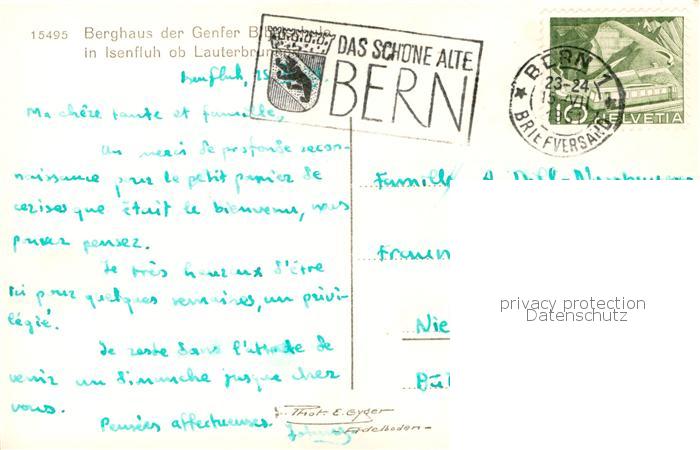 15495 Berghaus der Genfer
in Isenfluh ob Lauterbrunnen
DAS SCHÖNE ALTE
BERN
BERN 1
23-24
15.VII
BRIEFVERSAND
HELVETIA
Isenfluh, 15.
Ma chère tante et famille,
Un merci de profonde recon-
naissance pour le petit panier de
cerises que était le bienvenu, vous
pouvez penser.
Je très heureux d'être
ici pour quelques semaines, un privi-
légié.
Je reste dans l'attente de
venir un dimanche jusque chez
vous.
Pensées affectueuses.
Famille
Frauen
Nie
Bül
privacy protection
Datenschutz
Phot. E. Gyger
Adelboden